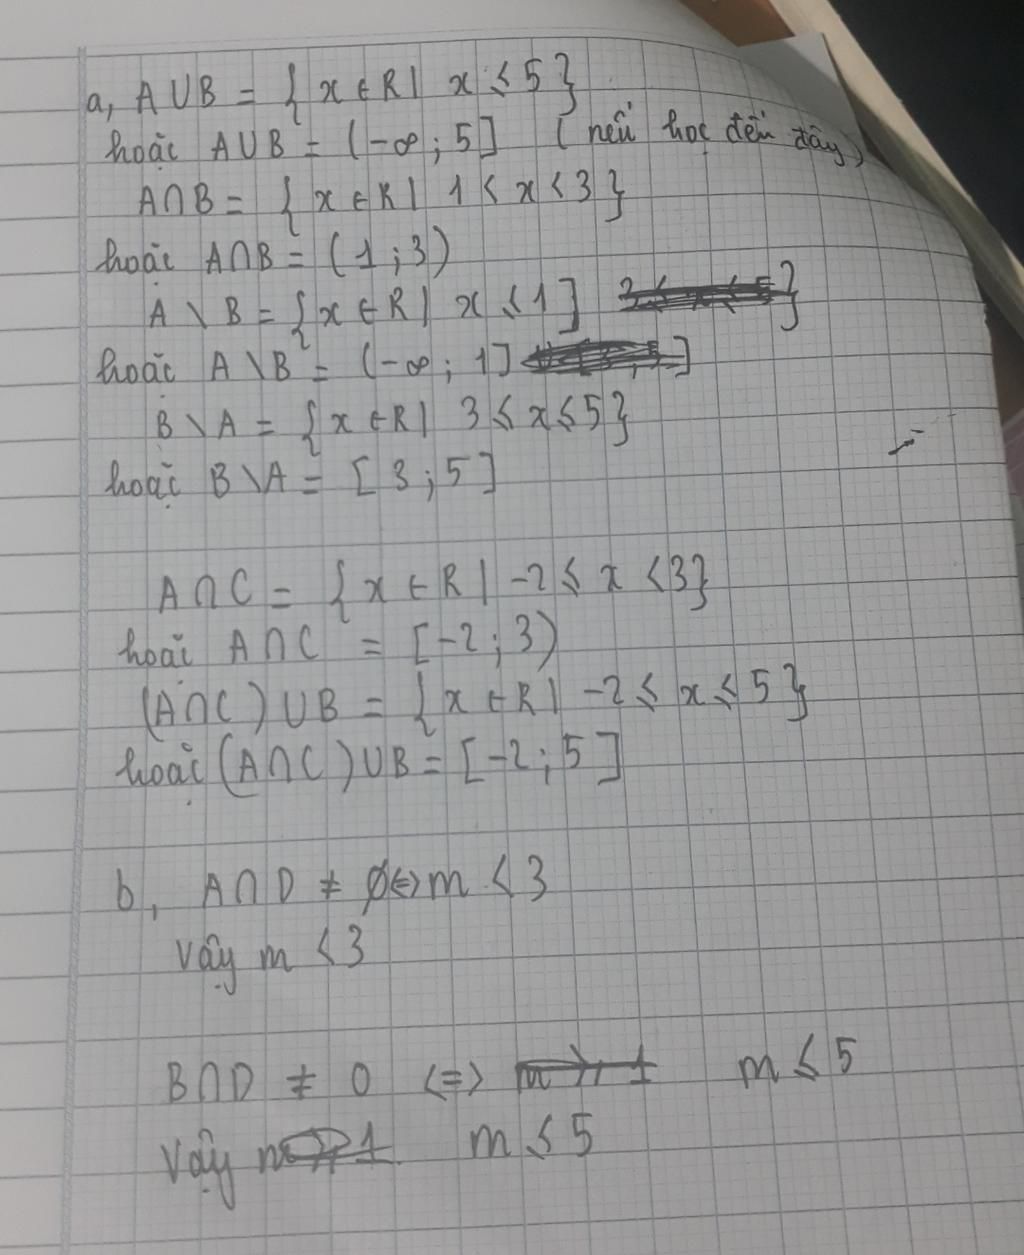 a, A∪B = { x ∈ R | x ≤ 5 }
hoặc A∪B = (-∞ ; 5] ( nếu học đến đây)
A∩B = { x ∈ R | 1 < x < 3 }
hoặc A∩B = (1 ; 3)
A \ B = { x ∈ R | x ≤ 1 ] }
hoặc A \ B = (-∞ ; 1] ]
B \ A = { x ∈ R | 3 ≤ x ≤ 5 }
hoặc B \ A = [ 3 ; 5 ]
A∩C = { x ∈ R | -2 ≤ x < 3 }
hoặc A∩C = [-2 ; 3)
(A∩C) ∪B = { x ∈ R | -2 ≤ x ≤ 5 }
hoặc (A∩C) ∪B = [-2 ; 5 ]
b, A∩D ≠ ∅ <=> m < 3
Vậy m < 3
B∩D ≠ 0 <=> m ≤ 5
Vậy m ≤ 5